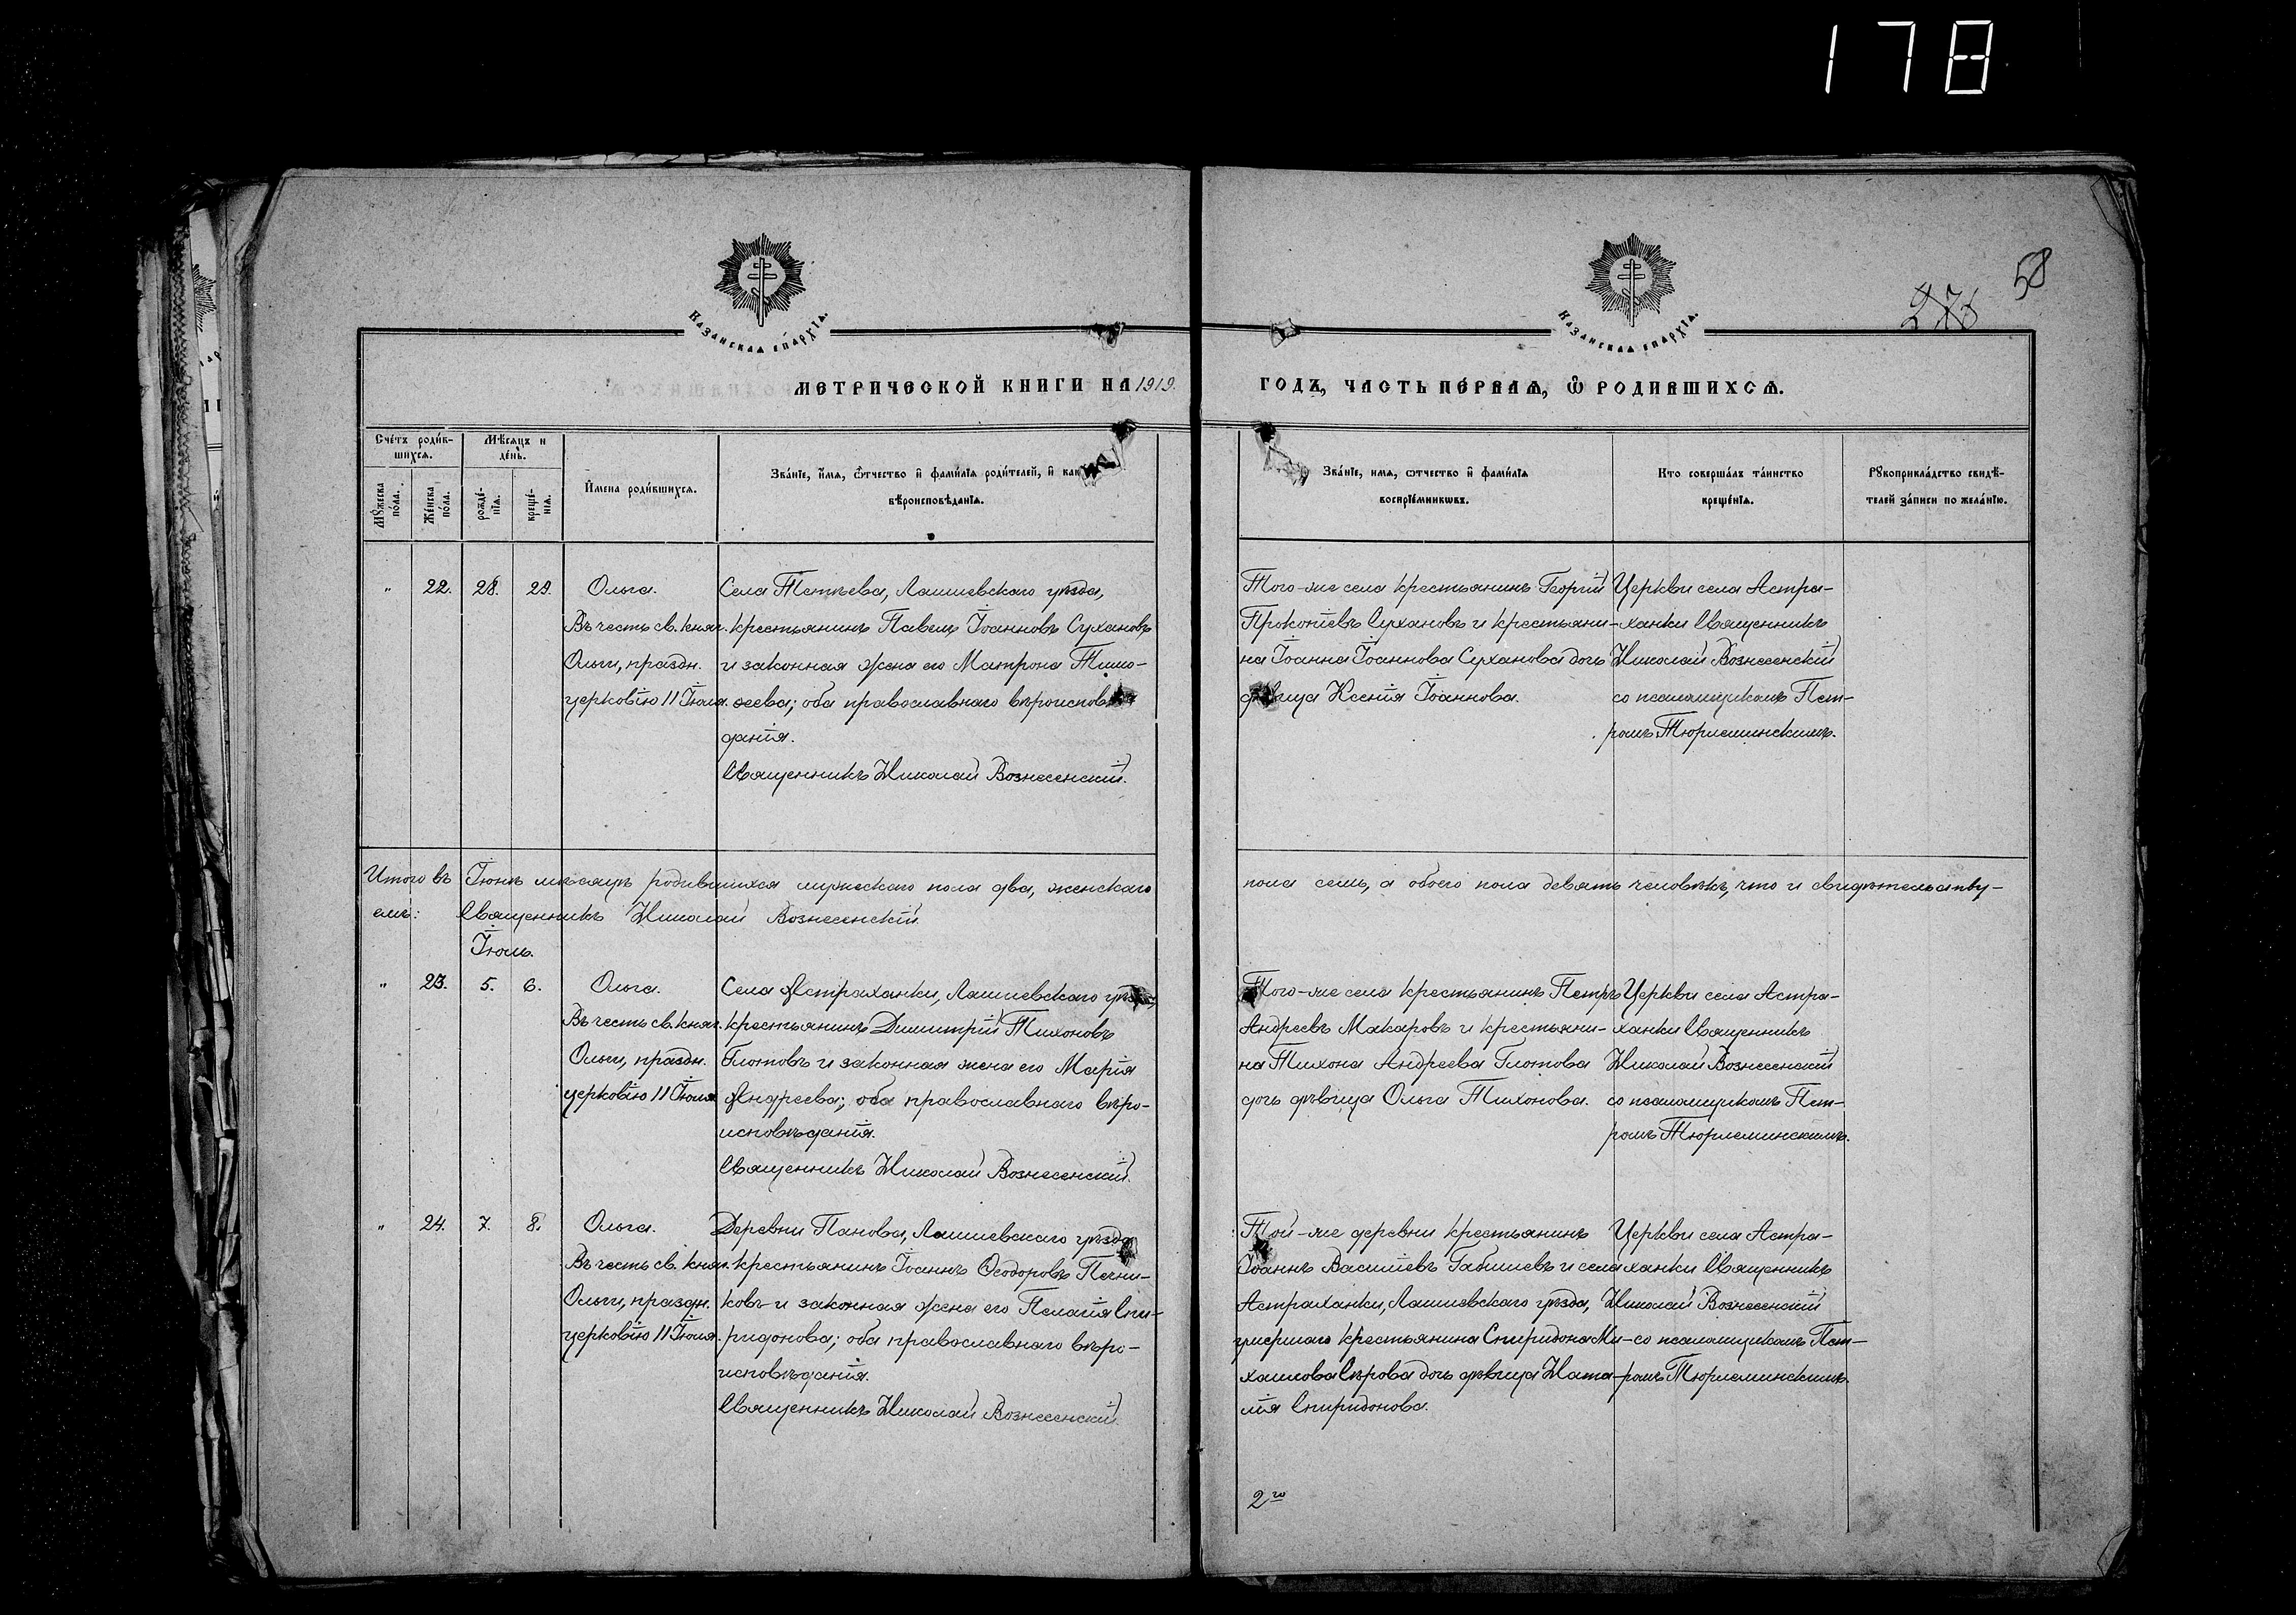 178
58
275
Казанская епархїя.
Казанская епархїя.
МЕТРИЧЕСКОЙ КНИГИ НА 1919.
ГОДЪ, ЧАСТЬ ПЕРВАѦ, Ѿ РОДИВШИХСѦ.
Счетъ родив-
шихсѧ.
Мѣсѧцъ и
день.
Мꙋжеска пола.
Женска пола.
рожде-
нїѧ.
креще-
нїѧ.
Имена родившихсѧ.
Званїе, имѧ, ѿчество и фамилїѧ родителей, и как
вѣроисповѣданїѧ.
Званїе, имѧ, ѿчество и фамилїѧ
воспрїемникѡвъ.
Кто совершалъ таинство
крещенїѧ.
Рꙋкоприкладство свидѣ-
телей записи по желанїю.
" 22. 28. 29. Ольга.
Въ честь св. княг.
Ольги, праздн.
церковію 11 Іюля.
Села Тетѣева, Лаишевскаго уѣзда,
крестьянинъ Павелъ Іоанновъ Сухановъ
и законная жена его Матрона Тимо-
ѳеева; оба православнаго вѣроисповѣ-
данія.
Священникъ Николай Вознесенскій.
Того-же села крестьянинъ Георгій
Прокопіевъ Сухановъ и крестьяни-
на Іоанна Іоаннова Суханова дочь
дѣвица Ксенія Іоаннова.
Церкви села Астра-
ханки Священникъ
Николай Вознесенскій
со псаломщикомъ Пет-
ромъ Тюрлеминскимъ.
Итого въ Іюнѣ мѣсяцѣ родившихся мужескаго пола два, женскаго
пола семь, а обоего пола девять человѣкъ, что и свидѣтельству-
емъ: Священникъ Николай Вознесенскій
Іюль.
" 23. 5. 6. Ольга.
Въ честь св. княг.
Ольги, праздн.
церковію 11 Іюля
Села Астраханки, Лаишевскаго уѣзда,
крестьянинъ Димитрій Тихоновъ
Глотовъ и законная жена его Марія
Андреева; оба православнаго вѣро-
исповѣданія.
Священникъ Николай Вознесенскій.
Того-же села крестьянинъ Петръ
Андреевъ Макаровъ и крестьяни-
на Тихона Андреева Глотова
дочь дѣвица Ольга Тихонова.
Церкви села Астра-
ханки Священникъ
Николай Вознесенскій
со псаломщикомъ Пет-
ромъ Тюрлеминскимъ.
" 24. 7. 8. Ольга.
Въ честь св. княг.
Ольги, праздн.
церковію 11 Іюля.
Деревни Панова, Лаишевскаго уѣзда
крестьянинъ Іоаннъ Ѳеодоровъ Печни-
ковъ и законная жена его Пелагія Спи-
ридонова; оба православнаго вѣро-
исповѣданія.
Священникъ Николай Вознесенскій.
Той-же деревни крестьянинъ
Іоаннъ Василіевъ Габишевъ и села
Астраханки, Лаишевскаго уѣзда,
умершаго крестьянина Спиридона Ми-
хаилова Сѣрова дочь дѣвица Ната-
лія Спиридонова.
Церкви села Астра-
ханки Священникъ
Николай Вознесенскій
со псаломщикомъ Пет-
ромъ Тюрлеминскимъ.
2го